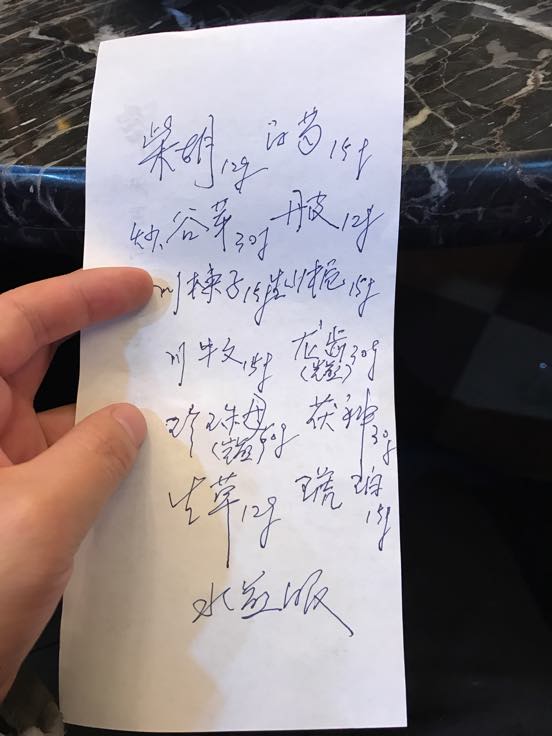 柴胡12g 白芍15g
炒谷芽30g 丹皮12g
川楝子15g 焦山栀15g
川牛文15g 龙齿30g
(先煎)
珍珠母30g 茯神30g
(先煎)
生草12g 琥珀15g
水煎服